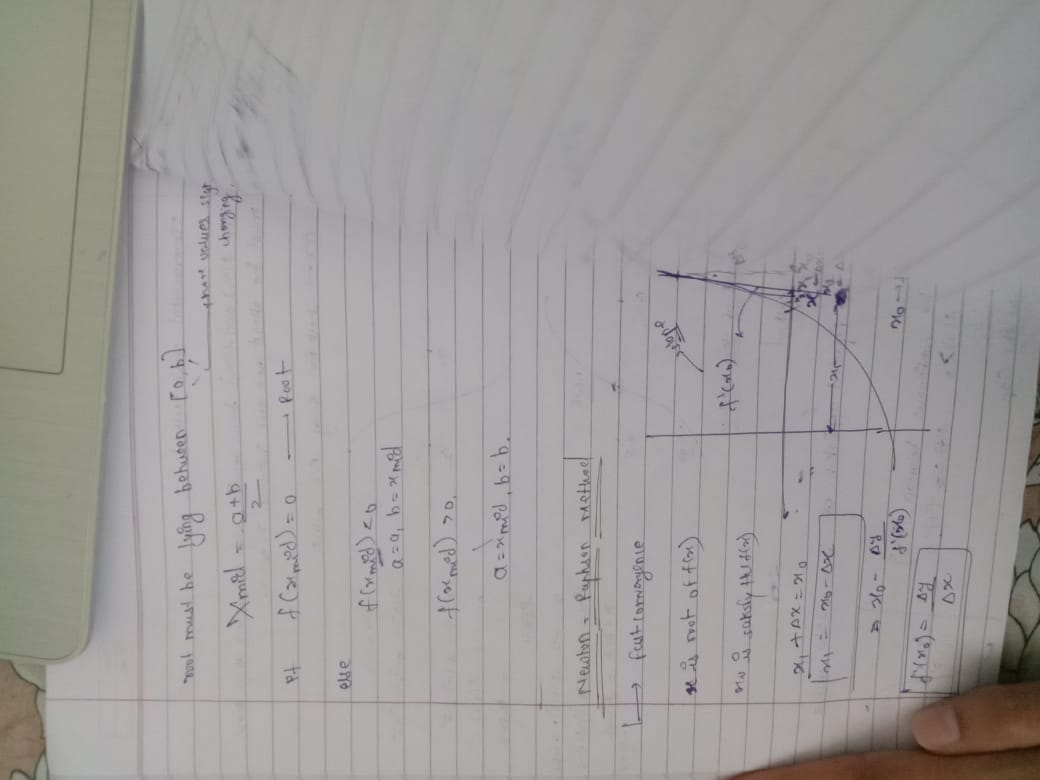 root must be lying between [a, b]
values sign
changing.
Xmid = a+b
2
If f(xmid) = 0 → Root
else
f(xmid) < 0
a = a, b = xmid
f(xmid) > 0.
a = xmid, b = b.
Newton - Raphson Method
↳ fast convergence
x is root of f(x)
slope
f'(x₀)
x₀ is satisfy f(x)
x₁ + Δx = x₀
x₁ = x₀ - Δx
= x₀ - Δy
f'(x₀)
f'(x₀) = Δy
Δx